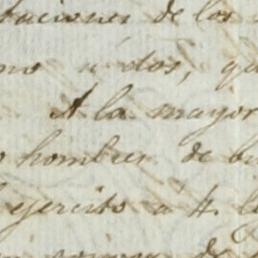 taciones de los
no u dos, qu
A la mayor
hombres de bu
ejercito a 4. l
de